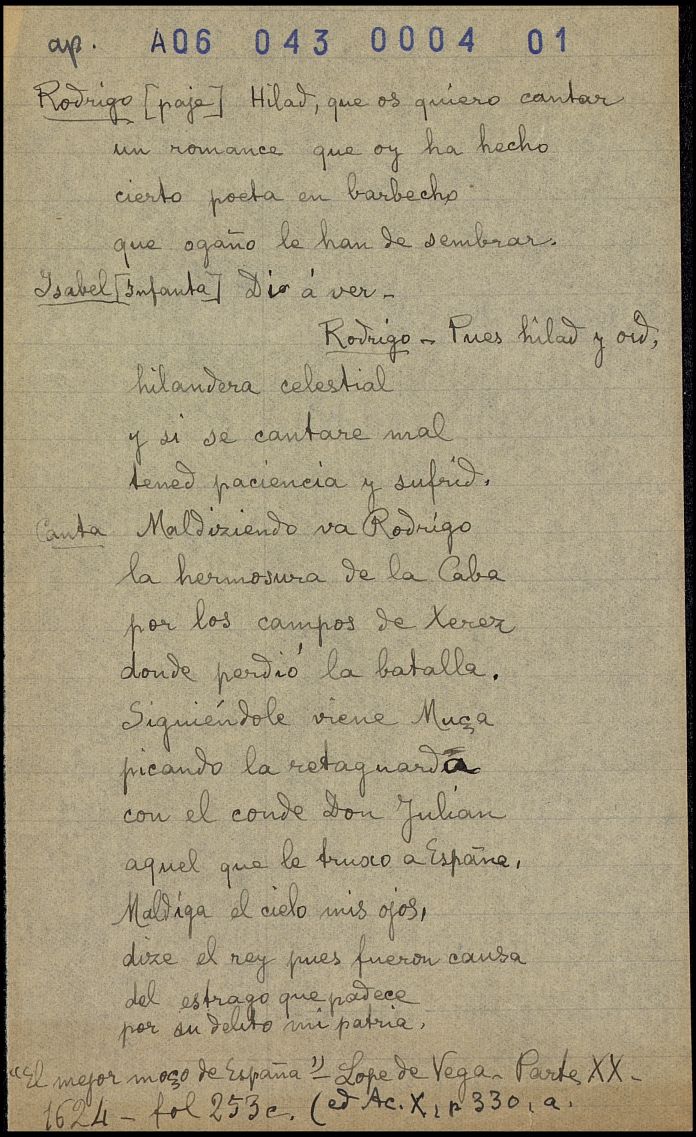 ap. A06 043 0004 01
Rodrigo [paje] Hilad, que os quiero cantar
un romance que oy ha hecho
cierto poeta en barbecho
que ogaño le han de sembrar.
Isabel [Infanta] Di á ver -
Rodrigo - Pues hilad y oid,
hilandera celestial
y si se cantare mal
tened paciencia y sufrid.
Canta Maldiziendo va Rodrigo
la hermosura de la Caba
por los campos de Xerez
donde perdió la batalla.
Siguiéndole viene Muça
picando la retaguarda
con el conde Don Julián
aquel que le truxo a España,
Maldiga el cielo mis ojos,
dize el rey pues fueron causa
del estrago que padece
por su delito mi patria.
"El mejor moço de España" - Lope de Vega - Parte XX -
1624 - fol 253c. (ed Ac. X, p 330, a.